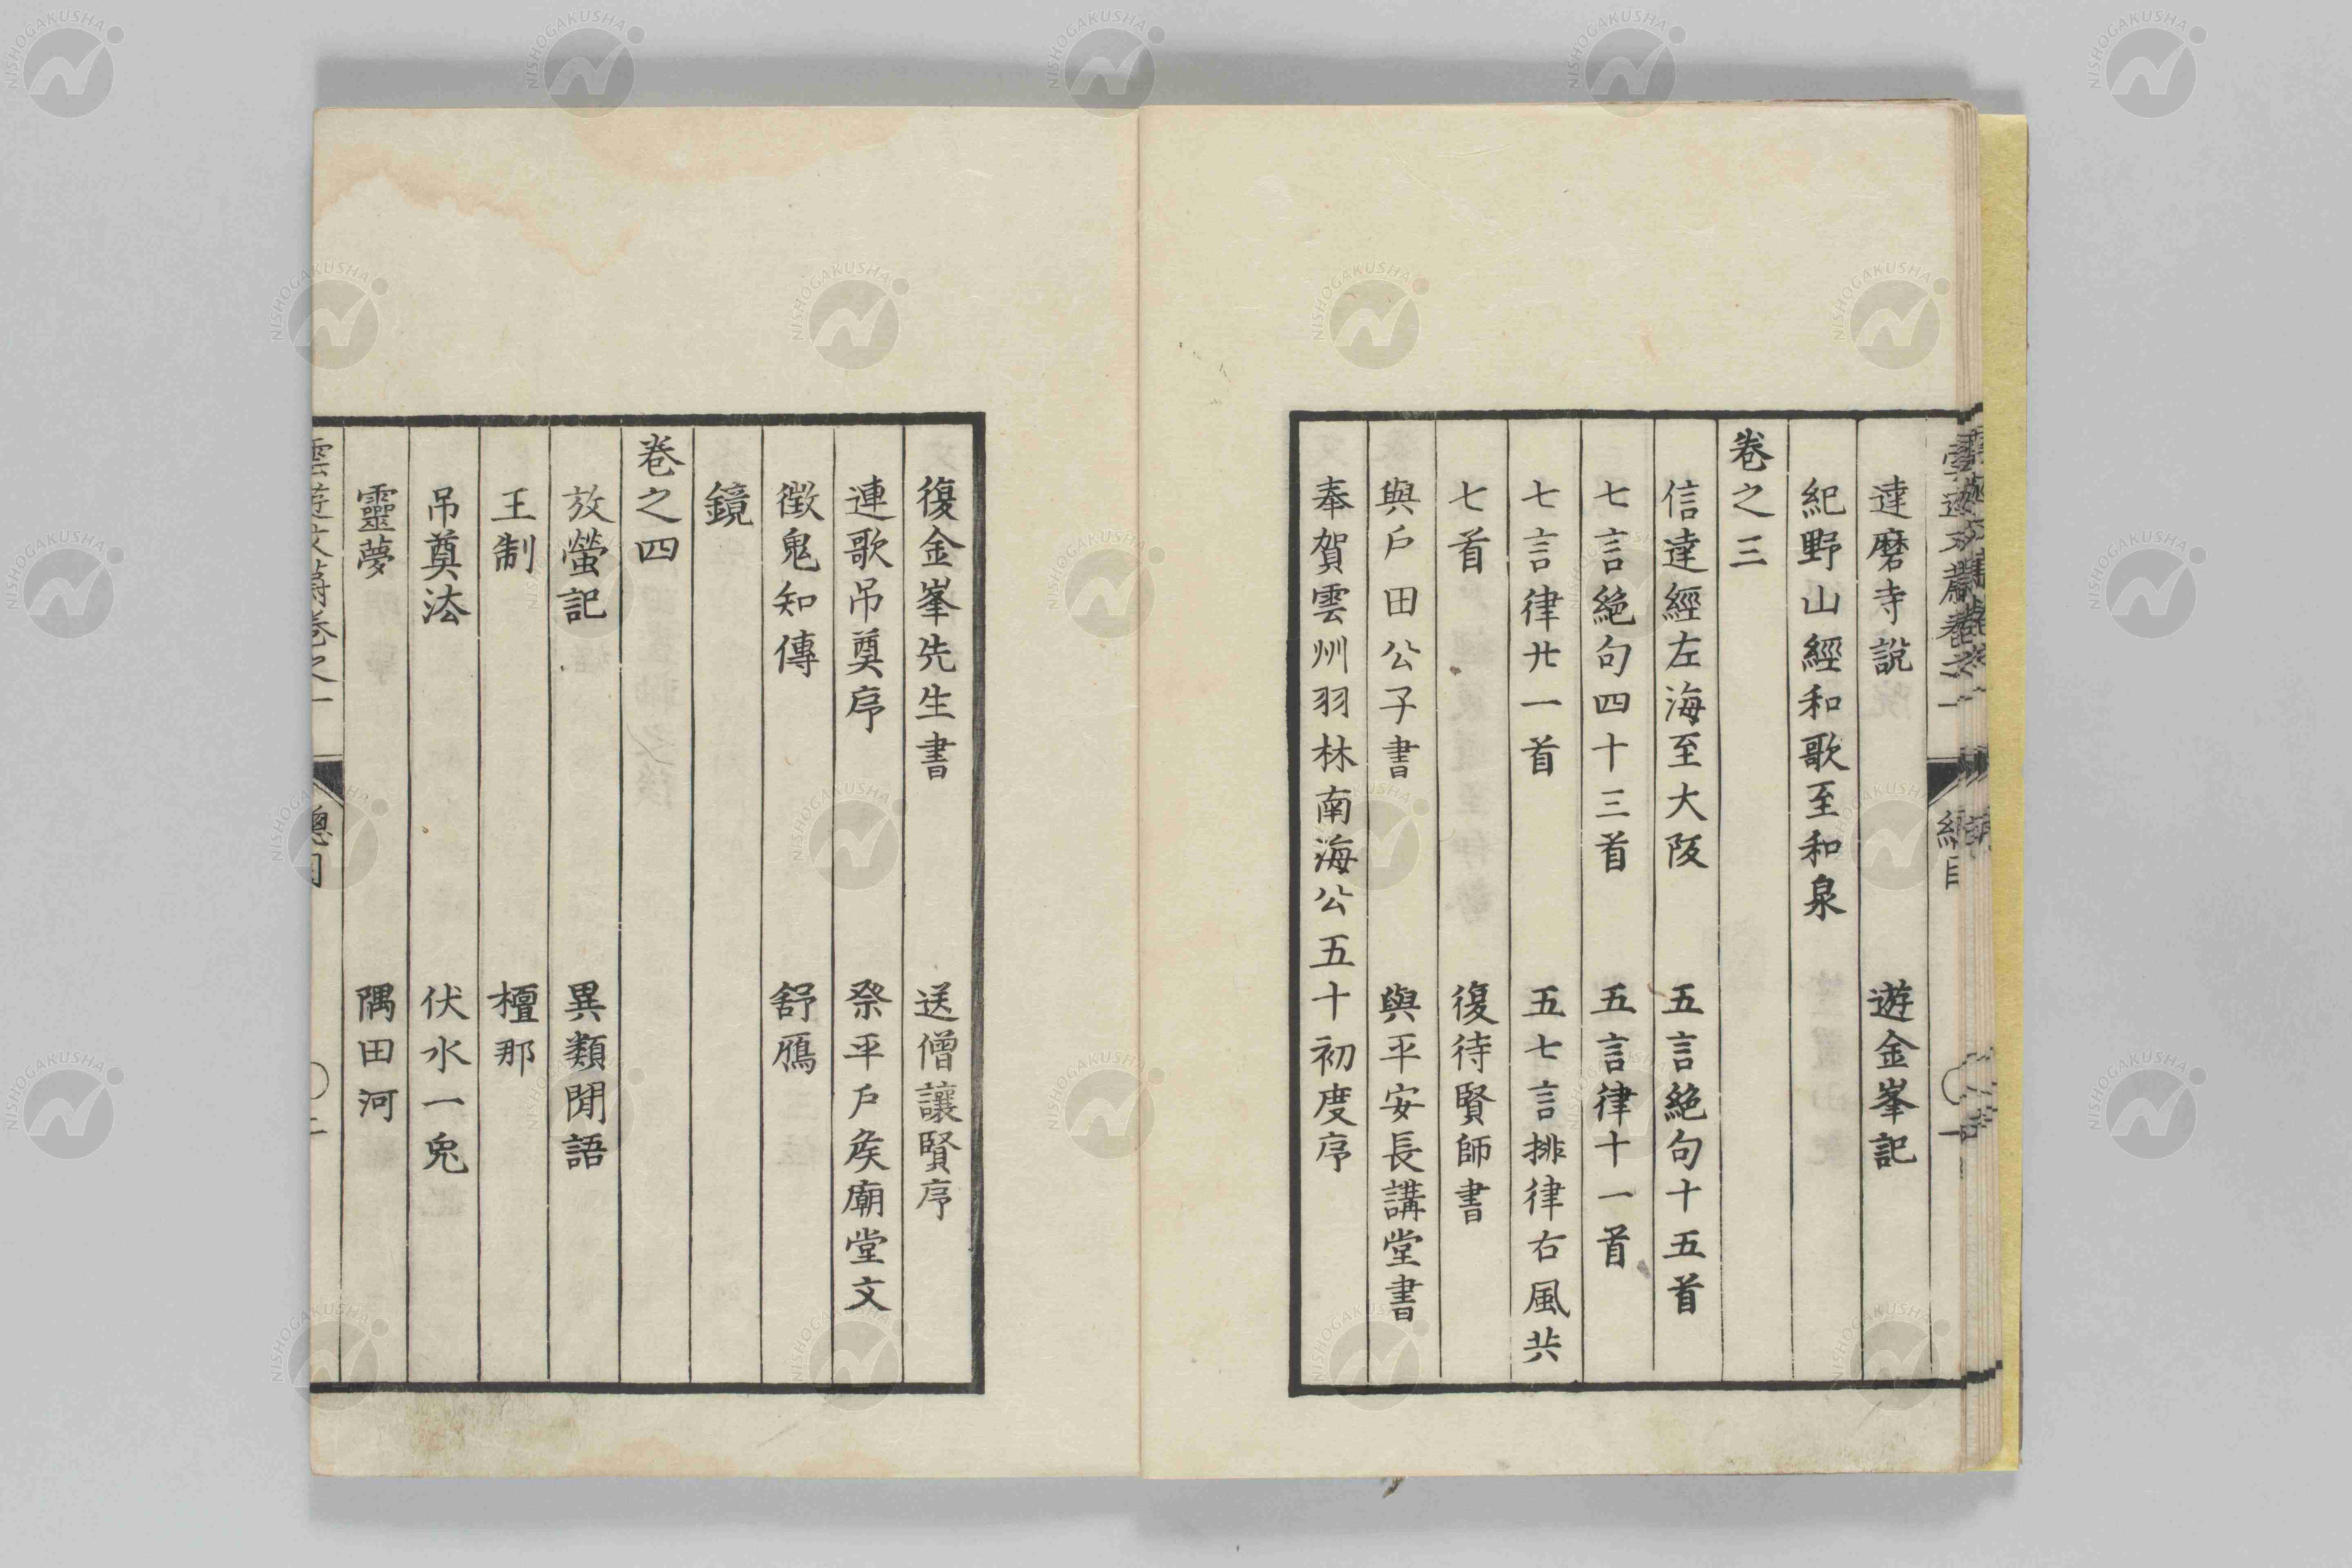 達磨寺說　遊金峯記
紀野山經和歌至和泉
卷之三
信達經左海至大阪　五言絕句十五首
七言絕句四十三首　五言律十一首
七言律廿一首　五七言排律右風共
七首　復待賢師書
與戶田公子書　與平安長講堂書
奉賀雲州羽林南海公五十初度序
復金峯先生書　送僧讓賢序
連歌吊奠序　祭平戶矦廟堂文
徵鬼知傳　舒鴈
鏡
卷之四
放螢記　異類閒語
王制　檀那
吊奠法　伏水一兎
靈夢　隅田河
雲遊文蔚卷之一　總目　二
NISHOGAKUSHA